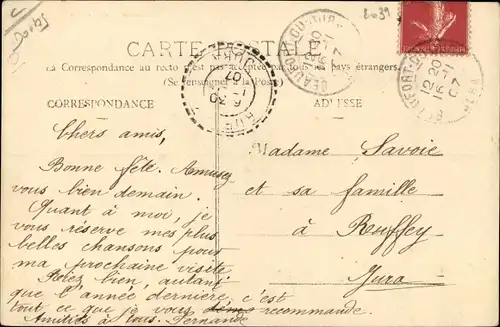 2039
CARTE POSTALE
La Correspondance au recto n'est pas acceptée par tous les pays étrangers
(Se renseigner à la Poste)
CORRESPONDANCE
ADRESSE
Chers amis,
Bonne fête. Amusez
vous bien demain.
Quant à moi, je
vous réserve mes plus
belles chansons pour
ma prochaine visite
Rotez bien, autant
que l'année dernière, c'est
tout ce que je vous recommande.
Amitiés à tous. Fernande
Madame Savoie
et sa famille
à Ruffey
Jura
12 20
16 - 11
07
JURA